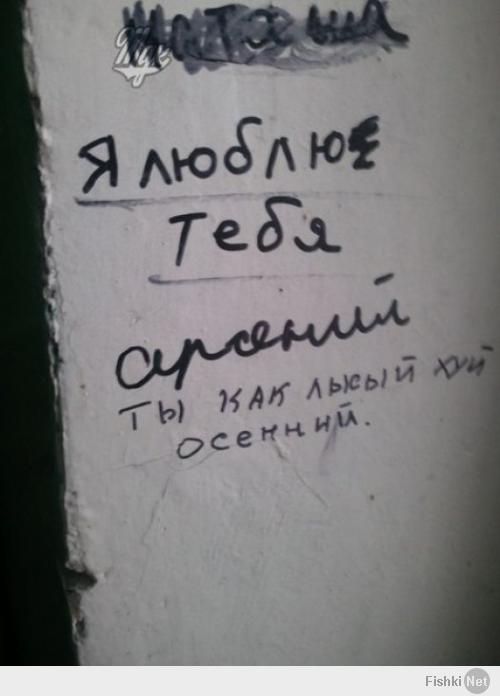 Наташа
Я люблю
тебя
арсений
ты как лысый хуй
осенний.
Fishki Net